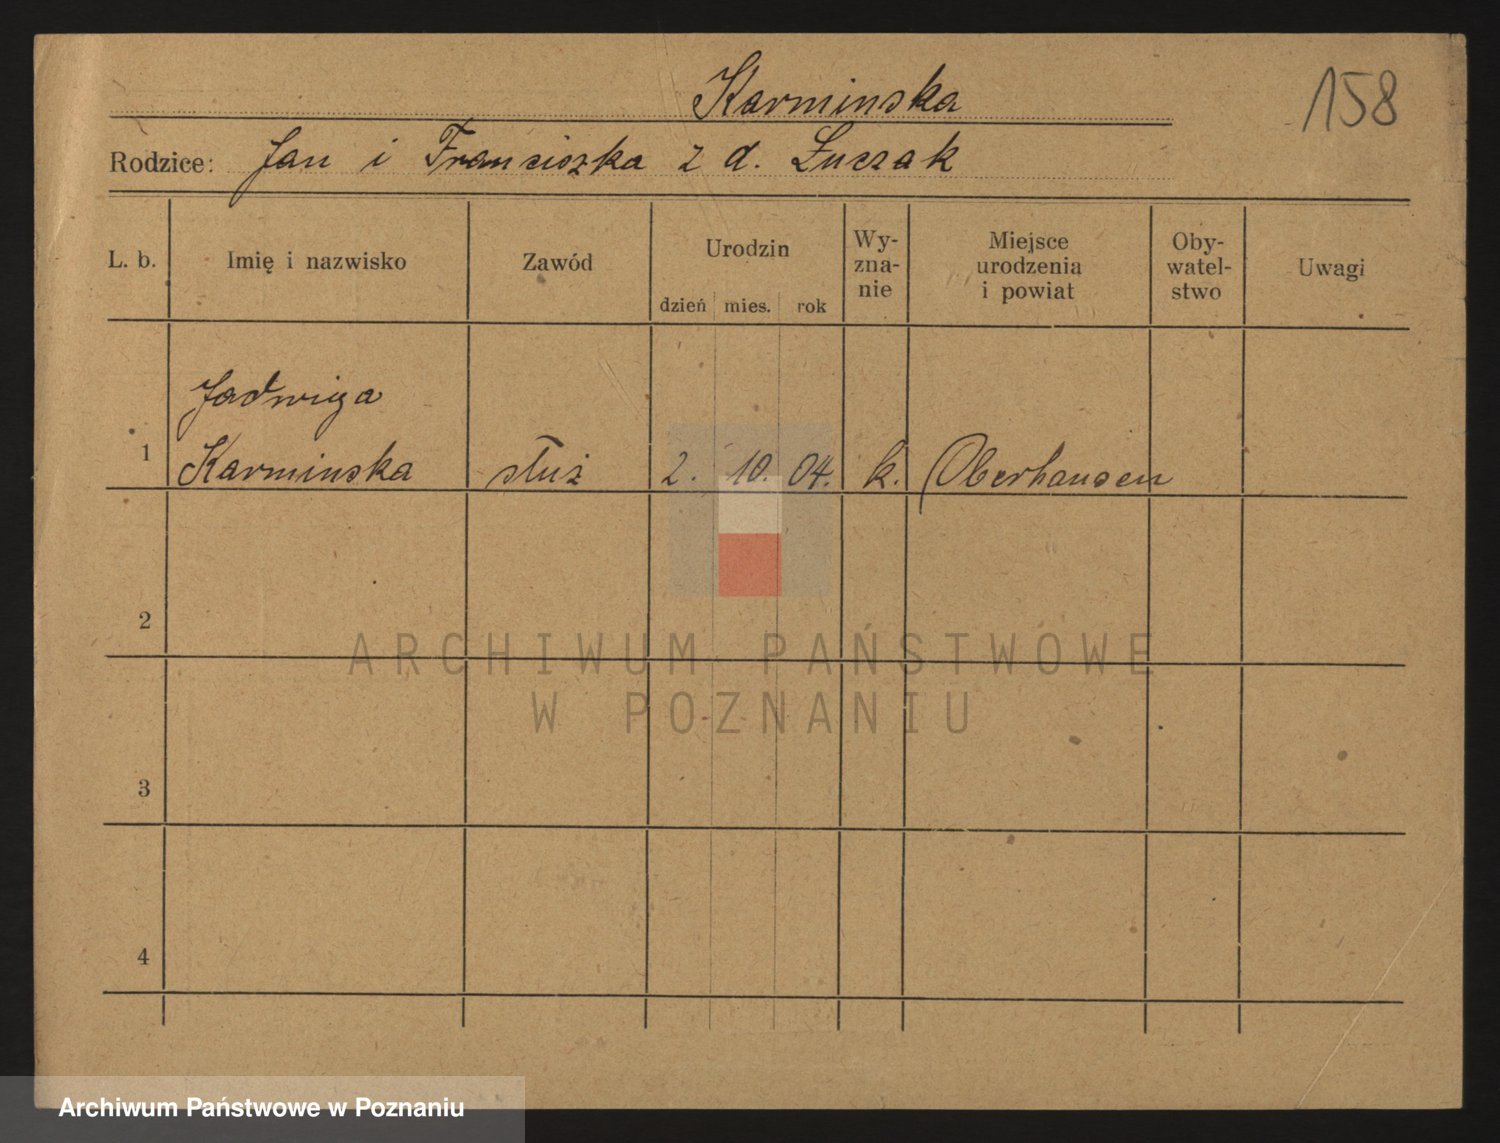 Karminska
158
Rodzice: Jan i Franciszka z d. Łuczak
L. b. Imię i nazwisko Zawód Urodzin dzień mies. rok Wy-zna-nie Miejsce urodzenia i powiat Oby-watel-stwo Uwagi
Jadwiga
1 Karminska służ 2. 10. 04. k. Oberhausen
2
ARCHIWUM PAŃSTWOWE
W POZNANIU
3
4
Archiwum Państwowe w Poznaniu